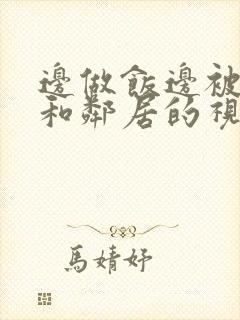 邊做飯邊被
和鄰居的視
馬婧妤